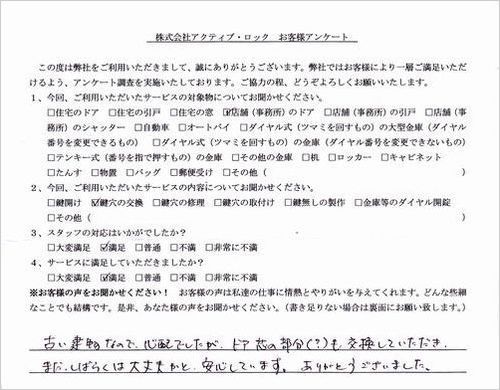 株式会社アクティブ・ロック　お客様アンケート
この度は弊社をご利用いただきまして、誠にありがとうございます。弊社ではお客様により一層ご満足いただ
けるよう、アンケート調査を実施いたしております。ご協力の程、どうぞよろしくお願いいたします。
1、今回、ご利用いただいたサービスの対象物についてお聞かせください。
□住宅のドア　□住宅の引戸　□住宅の窓　☑店舗（事務所）のドア　□店舗（事務所）の引戸　□店舗（事
務所）のシャッター　□自動車　□オートバイ　□ダイヤル式（ツマミを回すもの）の大型金庫（ダイヤル
番号を変更できるもの）　□ダイヤル式（ツマミを回すもの）の金庫（ダイヤル番号を変更できないもの）
□テンキー式（番号を指で押すもの）の金庫　□その他の金庫　□机　□ロッカー　□キャビネット
□たんす　□物置　□バッグ　□郵便受け　□その他（　　　）
2、今回、ご利用いただいたサービスの内容についてお聞かせください。
□鍵開け　☑鍵穴の交換　□鍵穴の修理　□鍵穴の取付け　□鍵無しの製作　□金庫等のダイヤル開錠
□その他（　　　）
3、スタッフの対応はいかがでしたか？
□大変満足　☑満足　□普通　□不満　□非常に不満
4、サービスに満足していただきましたか？
□大変満足　☑満足　□普通　□不満　□非常に不満
※お客様の声をお聞かせください！　お客様の声は私達の仕事に情熱とやりがいを与えてくれます。どんな些細
なことでも結構です。是非、あなた様の声をお聞かせください。（書き足りない場合は裏面にお願い致します。）
古い建物なので、心配でしたが、ドア の部分(?)も交換していただき、
まだしばらくは大丈夫かと、安心しています。ありがとうございました。